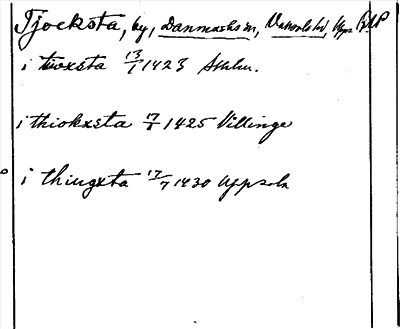 Tjocksta, by, Danmarks sn, Vaksala hd, Upps.
i tioxsta 13/1 1423
i thiokxsta 17/8 1425 Villinge
i thiugxta 17/7 1430 Uppsala